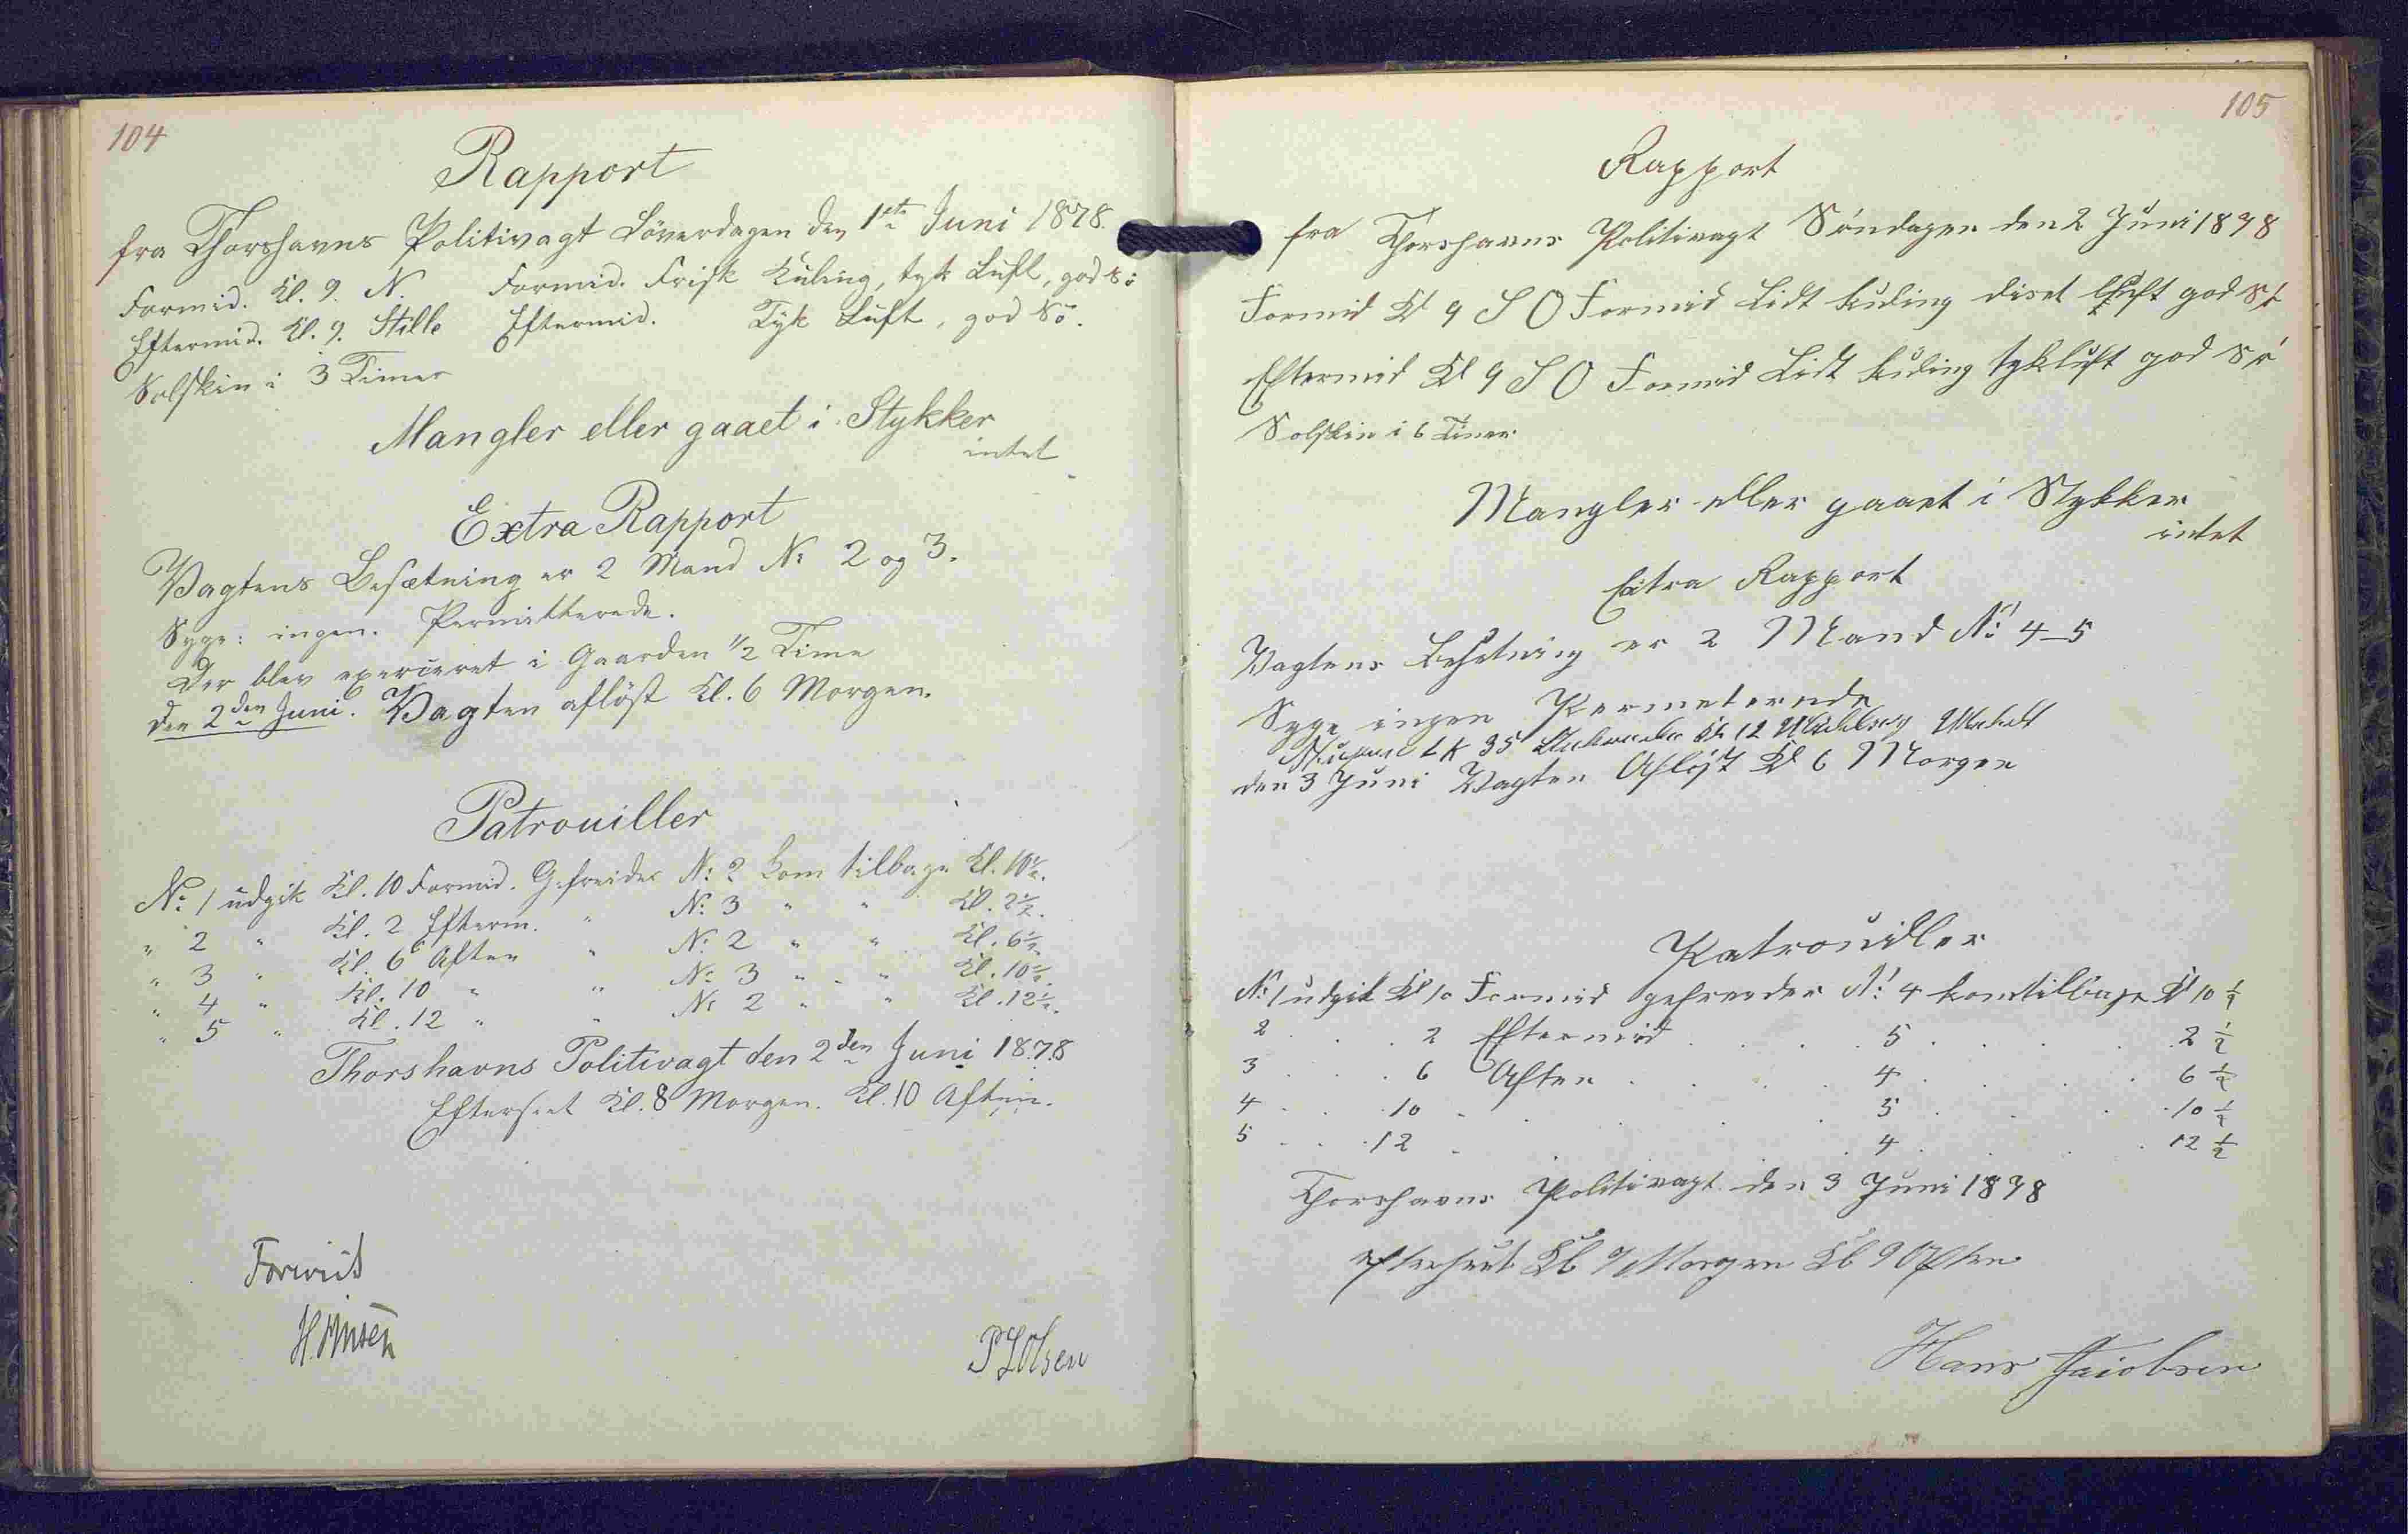 104
Rapport
fra Thorshavns Politivagt Löverdagen den 1ste Juni 1878.
Formid. Kl. 9. N. Formid. Frisk Kuling, tyk Luft, god Sö
Eftermid. Kl. 9. Stille Eftermid. Tyk Luft, god Sö.
Solskin i 3 Timer
Mangler eller gaaet i Stykker
intet
Extra Rapport
Vagtens Besætning er 2 Mand No 2 og 3.
Syge: ingen. Permitterede.
Der blev exerceret i Gaarden 1/2 Time
den 2den Juni. Vagten aflöst Kl. 6 Morgen.
Patrouiller
No 1 udgik Kl. 10 Formid. Gefreider No 2 kom tilbage Kl. 10½.
" 2 " Kl. 2 Efterm. " No 3 " " Kl. 2½.
" 3 " Kl. 6 Aften " No 2 " " Kl. 6½.
" 4 " Kl. 10 " " No 3 " " Kl. 10½.
" 5 " Kl. 12 " " No 2 " " Kl. 12½.
Thorshavns Politivagt den 2den Juni 1878
Efterseet Kl. 8 Morgen. Kl. 10 Aften.
Forevist
P Olsen
105
Rapport
fra Thorshavns Politivagt Söndagen den 2 Juni 1878
Formid Kl 9 S O Formid Lidt kuling diset luft god Sö
Eftermid Kl 9 S O Formid Lidt kuling tykluft god Sö
Solskin i 6 Timer
Mangler eller gaaet i Stykker
intet
Extra Rapport
Vagtens Besetning er 2 Mand No 4-5
Syge ingen Permeterede
35 Kl 12
den 3 Juni Vagten Aflöst Kl 6 Morgen
Patrouiller
No 1 udgik Kl 10 Formid gefreider No 4 kom tilbage Kl 10 ½
2 . . . 2 Eftermid . . . . 5 . . . . 2 ½
3 . . . 6 Aften . . . . 4 . . . . 6 ½
4 . . . 10 . . . . 5 . . . . 10 ½
5 . . . 12 . . . . 4 . . . . 12 ½
Thorshavns Politivagt den 3 Juni 1878
efterseet Kl 7 Morgen Kl 9 Aften
Hans Jacobsen